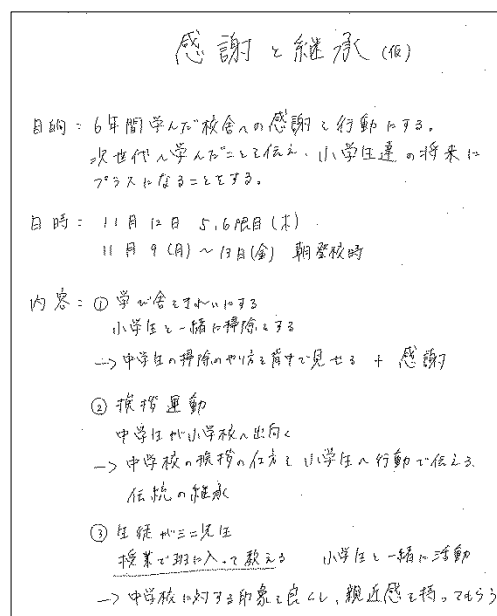 感謝と継承(仮)
目的：6年間学んだ校舎への感謝を行動にする。
次世代へ学んだことを伝え、小学生達の将来に
プラスになることをする。
日時：11月12日 5,6限目(木)
11月9(月)～13日(金) 朝登校時
内容：①学び舎をきれいにする
小学生と一緒に掃除をする
→中学生の掃除のやり方を背中で見せる + 感謝
②挨拶運動
中学生が小学校へ出向く
→中学校の挨拶の仕方を小学生へ行動で伝える
伝統の継承
③生徒がミニ先生
授業で班に入って教える 小学生と一緒に活動
→中学校に対する印象を良くし、親近感を持ってもらう